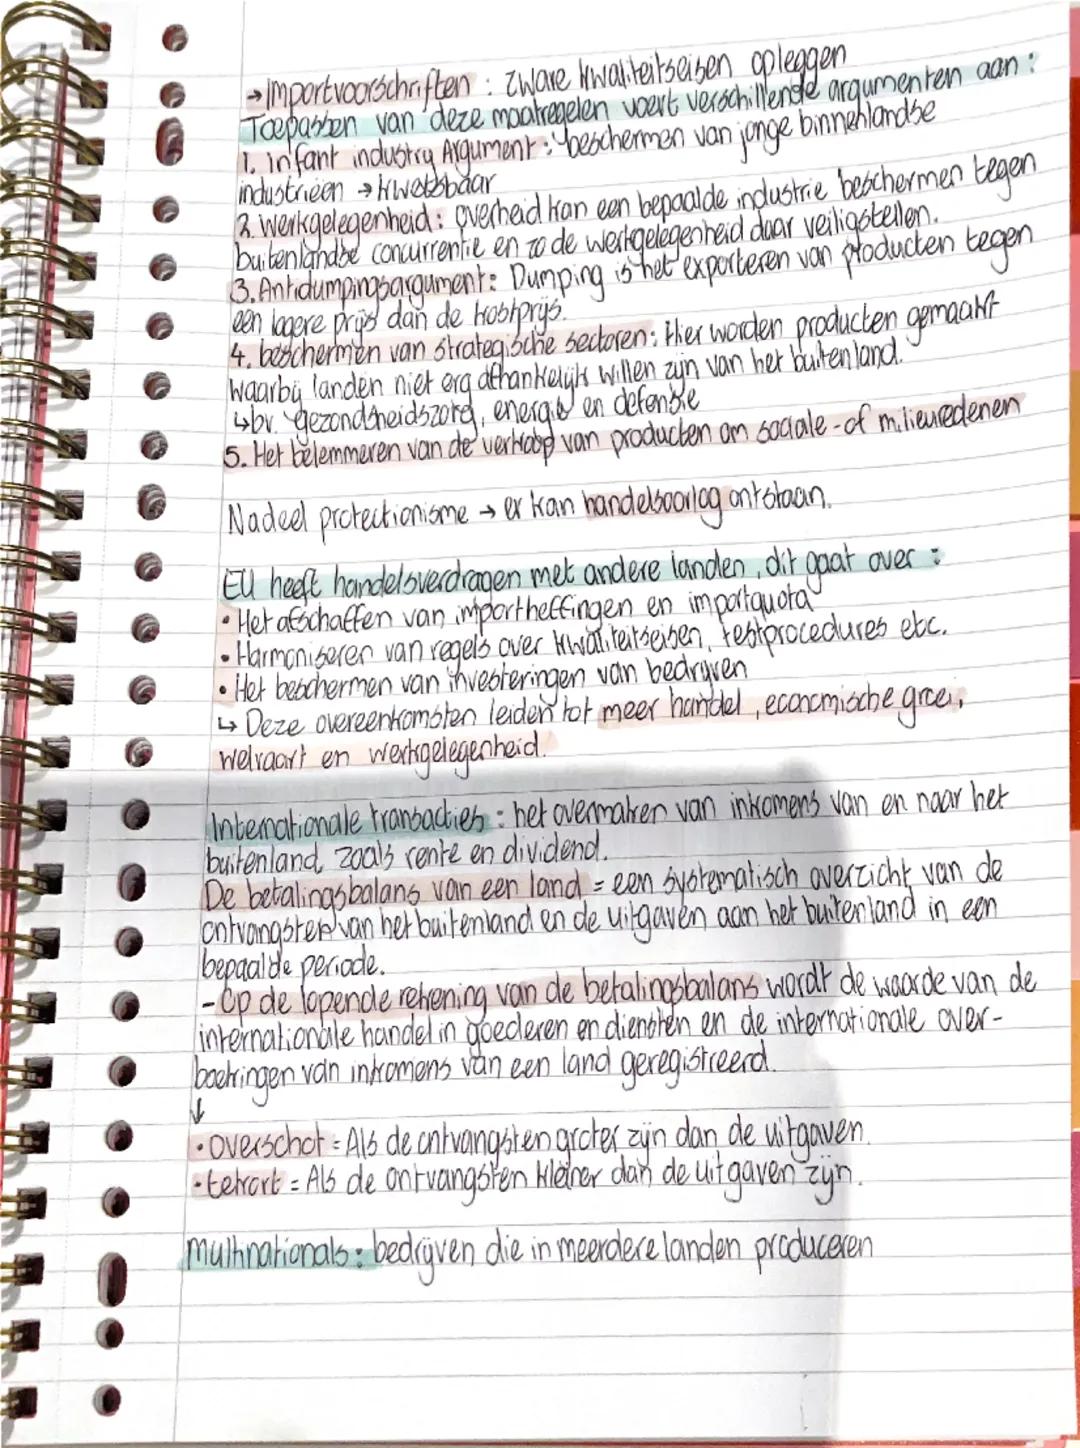 → Importvoorschriften : zware kwaliteitseisen opleggen
Toepassen van deze maatregelen voert verschillende argumenten aan :
1. Infant industry Argument : beschermen van jonge binnenlandse
industrieën → kwetsbaar
2. Werkgelegenheid : overheid kan een bepaalde industrie beschermen tegen
buitenlandse concurrentie en zo de werkgelegenheid daar veiligstellen.
3. Antidumpingsargument : Dumping is het exporteren van producten tegen
een lagere prijs dan de kostprijs.
4. beschermen van strategische sectoren : Hier worden producten gemaakt
waarbij landen niet erg afhankelijk willen zijn van het buitenland.
↳ bv. gezondheidszorg, energie en defensie
5. Het belemmeren van de verkoop van producten om sociale - of milieuredenen
Nadeel protectionisme → er kan handelsoorlog ontstaan.
EU heeft handelsverdragen met andere landen, dit gaat over :
• Het afschaffen van importheffingen en importquota
• Harmoniseren van regels over kwaliteitseisen, testprocedures etc.
• Het beschermen van investeringen van bedrijven
↳ Deze overeenkomsten leiden tot meer handel, economische groei,
welvaart en werkgelegenheid.
Internationale transacties : het overmaken van inkomens van en naar het
buitenland, zoals rente en dividend.
De betalingsbalans van een land = een systematisch overzicht van de
ontvangsten van het buitenland en de uitgaven aan het buitenland in een
bepaalde periode.
- Op de lopende rekening van de betalingsbalans wordt de waarde van de
internationale handel in goederen en diensten en de internationale over-
boekingen van inkomens van een land geregistreerd.
↓
• overschot = Als de ontvangsten groter zijn dan de uitgaven.
• tekort = Als de ontvangsten kleiner dan de uitgaven zijn.
Multinationals : bedrijven die in meerdere landen produceren